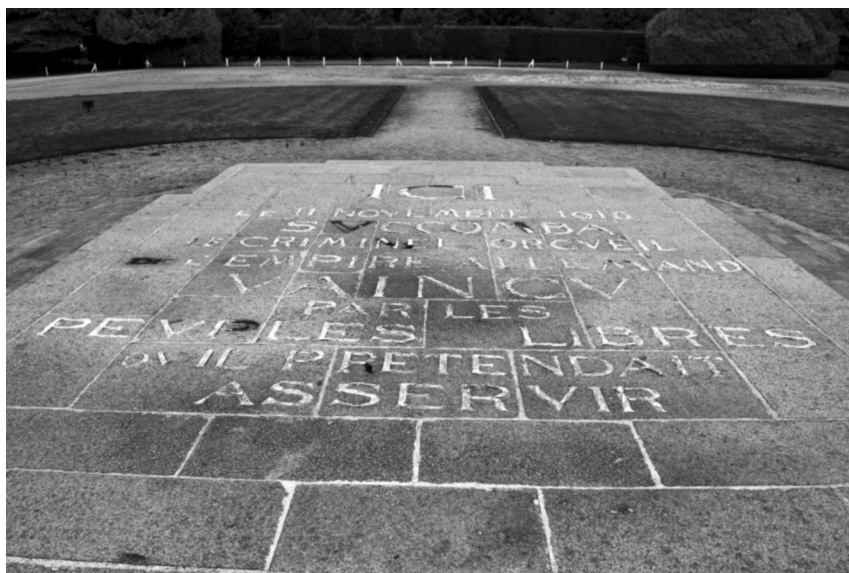 ICI
LE 11 NOVEMBRE 1918
SVCCOMBA
LE CRIMINEL ORGVEIL
L'EMPIRE ALLEMAND
VAINCV
PAR LES
PEVPLES LIBRES
QV'IL PRETENDAIT
ASSERVIR